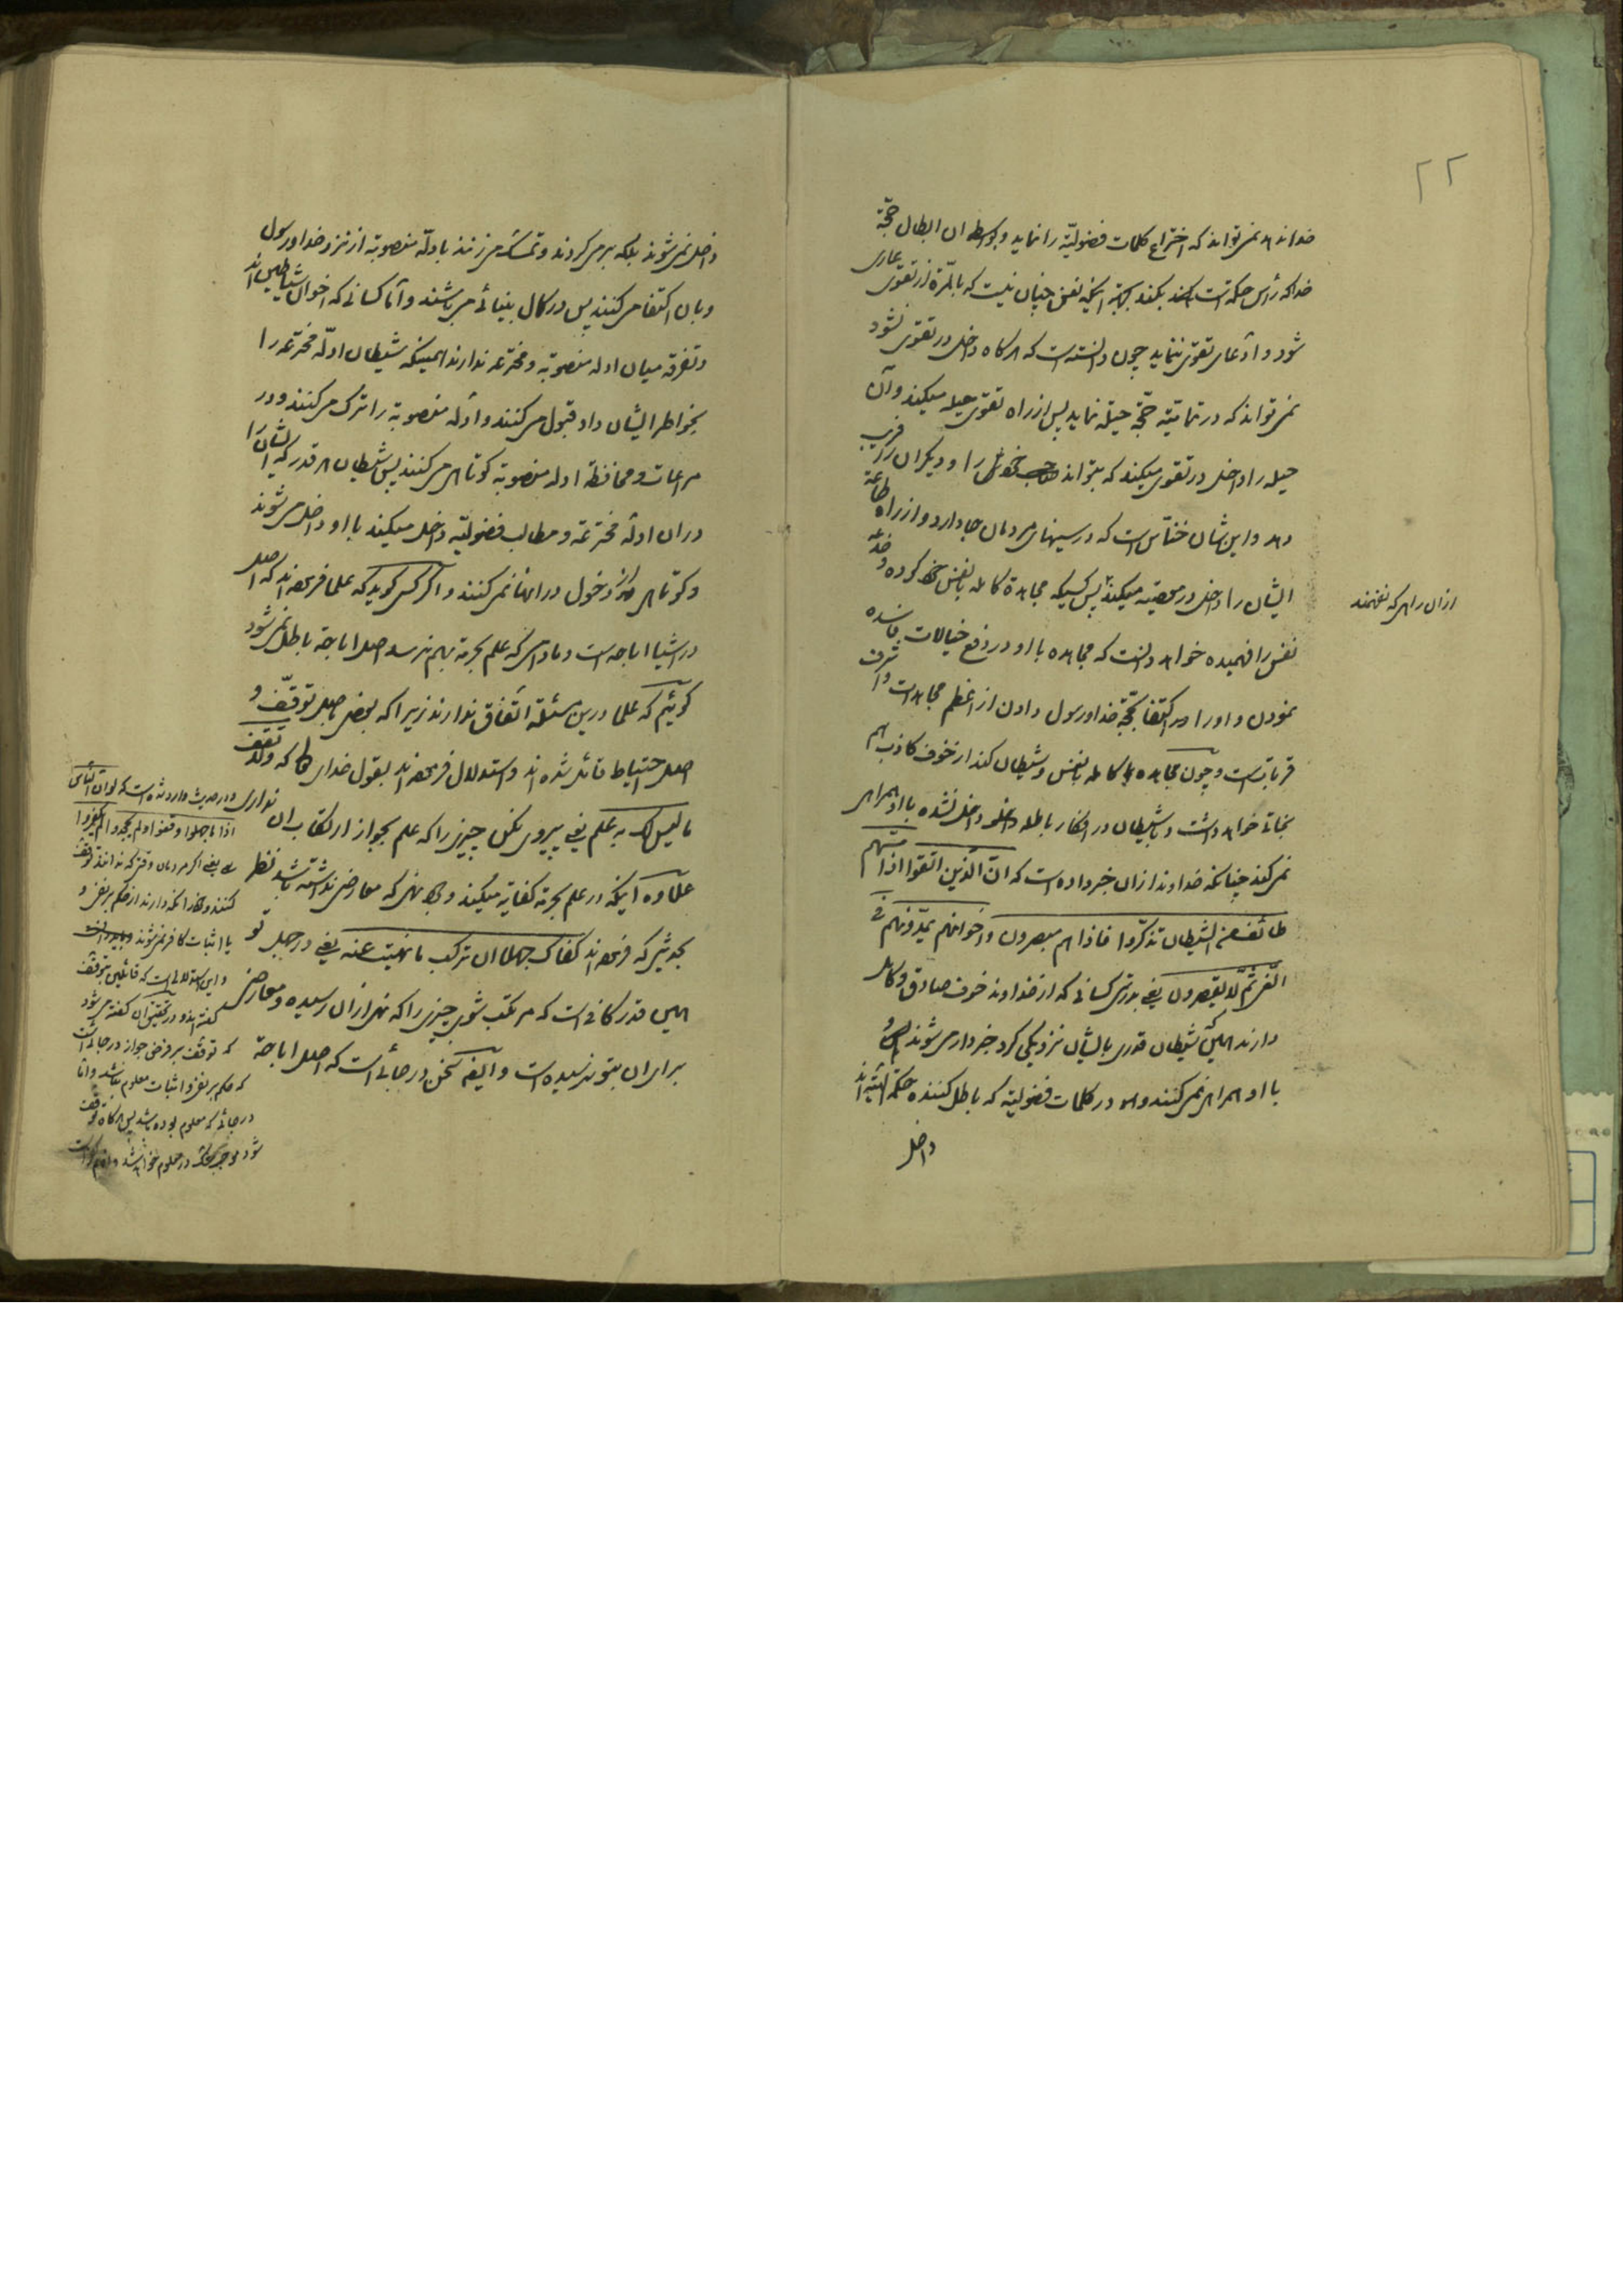 ۲۲
خدا ندهد نمی‌تواند که اختراع کلمات فضولیّه را نماید و بواسطه ان ابطال حجّة
خدا که رأس حکمة است بکند بجهة اینکه نفس چنان نیست که بالمرّة از تقوی عاری
شود و ادّعای تقوی ننماید چون دانسته است که هرکاه داخل در تقوی نشود
نمی‌تواند که در تمامیّة حجّة حیله نماید پس از راه تقوی حیله میکند و آن
حیله را داخل در تقوی میکند که بتواند صاحب خویش را و دیکران را فریب
دهد و این شان خنّاس است که در سینهای مردمان جا دارد و از راه طاعة
ایشان را داخل در معصیة میکند پس کسیکه مجاهدة کامله با نفس خود کرده و خدعه
ازان راهی که نفهمند
نفس را فهمیده خواهد دانست که مجاهده با او در دفع خیالات فاسده
نمودن و او را در اکتفا بحجّة خدا و رسول دادن از اعظم مجاهدات و اشرف
قرباتست و چون مجاهده کامله با نفس و شیطان کند از خوف کاذب هم
نجاة خواهد داشت و با شیطان در افکار باطله داخل نشده با او همراهی
نمی‌کند چنانکه خداوند ازان خبر داده است که انّ الّذین اتّقوا اذا مسّهم
طائف من الشیطان تذکّروا فاذا هم مبصرون و اخوانهم یمدّونهم فی
الغی ثمّ لا یقصرون یعنی بدرستی کسانی که از خداوند خوف صادق و کامل
دارند همین شیطان قدری بایشان نزدیکی کرد خبردار می‌شوند و
با او همراهی نمی‌کنند و در کلمات فضولیّه که باطل کننده حکمة الهیّه‌اند
داخل
داخل نمی‌شوند بلکه برمی‌کردند و تمسّک می‌زنند بادلّه منصوبة از نزد خدا و رسول
و بان اکتفا می‌کنند پس در کمال بینائی می‌باشند و امّا کسانی که اخوان شیاطین‌اند
و تفرقه میان ادله منصوبة و مخترعه ندارند همینکه شیطان ادلّه مخترعه را
بخواطر ایشان داد قبول می‌کنند و ادلّه منصوبة را ترک می‌کنند و در
مراعات و محافظة ادله منصوبة کوتاهی می‌کنند پس شیطان هر قدر که ایشان را
دران ادلّه مخترعه و مطالب فضولیّه داخل میکند با او داخل می‌شوند
و کوتاهی از دخول در انها نمی‌کنند و اکر کسی کوید که علما فرموده‌اند که اصل
در اشیا اباحه است و مادامی که علم بحرمة بهم نرسد اصل اباحة باطل نمی‌شود
کوئیم که علما درین مسئلة اتّفاق ندارند زیرا که بعضی باصل توقّف و
اصل احتیاط قائل شده‌اند و استدلال فرموده‌اند بقول خدای تعالی که و لا تقف
ما لیس لک به علم یعنی پیروی مکن چیزی را که علم بجواز ارتکاب ان نداری
علاوه اینکه در علم بحرمة کفایة میکند ورود نهی که معارض نداشته باشد نظر
بحدیثی که فرموده‌اند کفاک جهلا ان ترکب ما نهیت عنه یعنی در جهل تو
همین قدر کافی است که مرتکب شوی چیزی را که نهی ازان رسیده و معارض
برای ان بتو نرسیده است و ایضا سخن در جائی است که اصل اباحة
و در حدیث وارد شده است که لو ان النّاس
اذا جهلوا وقفوا و لم یجحدوا لم یکفروا
یعنی اکر مردمان وقتی که ندانند توقّف
کنند و خود را نکه دارند از حکم بر نفی و
یا اثبات کافر نمی‌شوند
و این استدلالی است که قائلین بتوقّف
کفته‌اند و در تحقیق ان کفته می‌شود
که توقّف بر فرض جواز در جائی است
که حکم بر نفی و اثبات معلوم نباشد و امّا
در جائی که معلوم بوده باشد پس هرکاه توقّف
شود موجب شک در معلوم خواهد شد